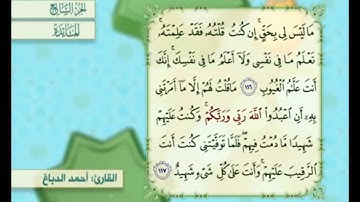 الجزء السابع
المائدة
مَا لَيْسَ لِي بِحَقٍّ ۚ إِن كُنتُ قُلْتُهُۥ فَقَدْ عَلِمْتَهُۥ ۚ
تَعْلَمُ مَا فِي نَفْسِي وَلَآ أَعْلَمُ مَا فِي نَفْسِكَ ۚ إِنَّكَ
أَنتَ عَلَّٰمُ ٱلْغُيُوبِ ١١٦ مَا قُلْتُ لَهُمْ إِلَّا مَآ أَمَرْتَنِي
بِهِۦٓ أَنِ ٱعْبُدُوا۟ ٱللَّهَ رَبِّي وَرَبَّكُمْ ۚ وَكُنتُ عَلَيْهِمْ
شَهِيدًا مَّا دُمْتُ فِيهِمْ ۖ فَلَمَّا تَوَفَّيْتَنِي كُنتَ أَنتَ
ٱلرَّقِيبَ عَلَيْهِمْ ۚ وَأَنتَ عَلَىٰ كُلِّ شَيْءٍ شَهِيدٌ ١١٧
القارئ: أحمد الدباغ